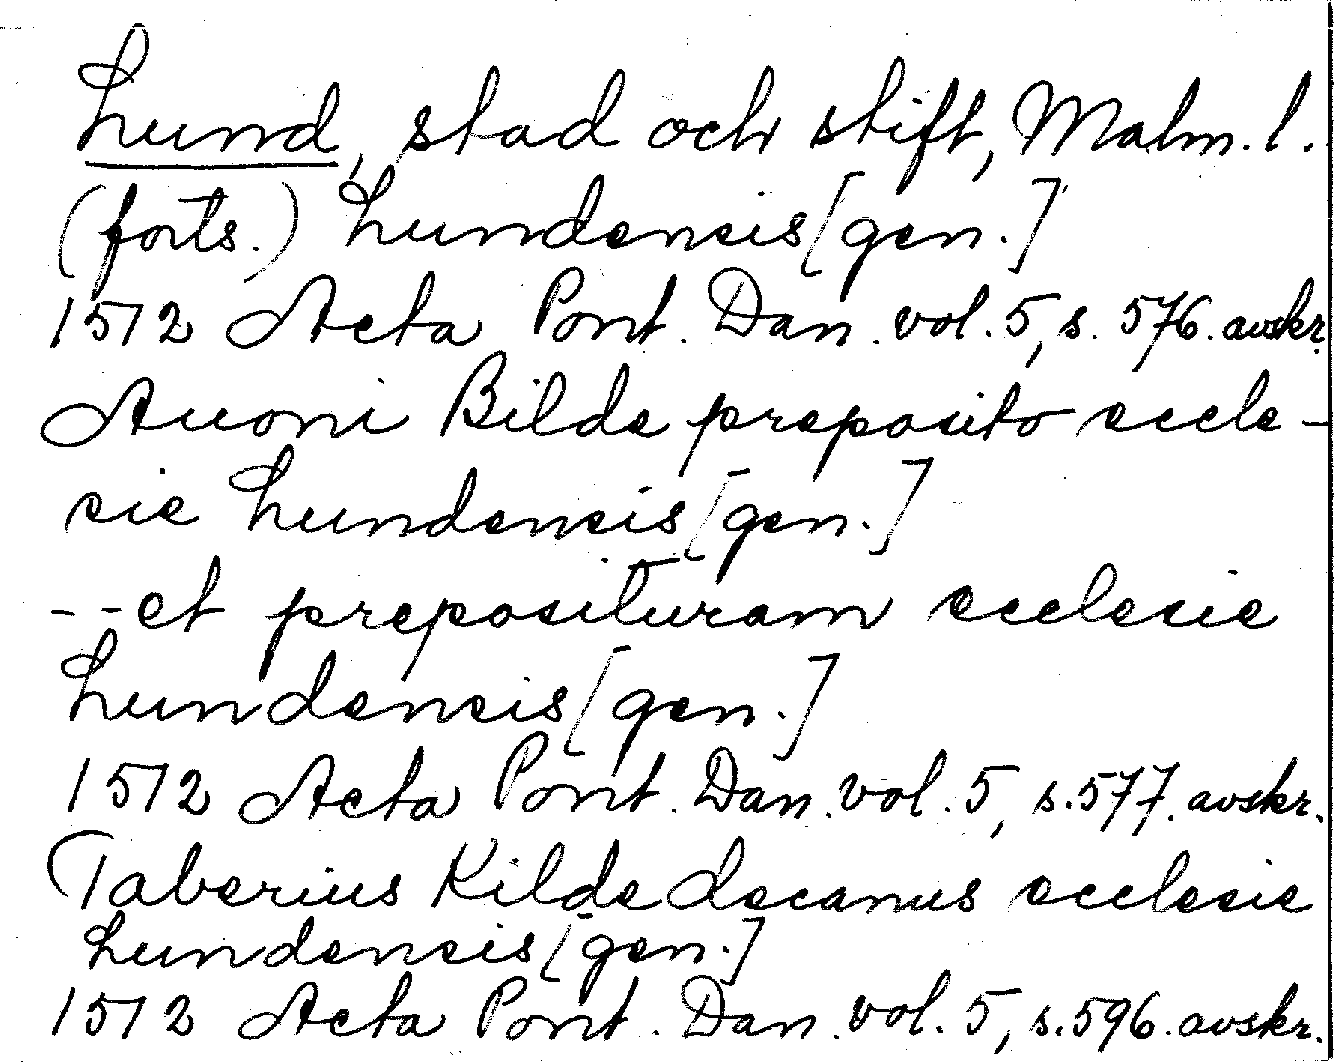 Lund, stad och stift, Malm. l.
(forts.) Lundensis [gen.]
1512 Acta Pont. Dan. vol. 5, s. 576. avskr.
Auoni Bilde preposito eccle-
sie Lundensis [gen.]
- - et preposituram ecclesie
Lundensis [gen.]
1512 Acta Pont. Dan. vol. 5, s. 577. avskr.
Taberius Kilde decanus ecclesie
Lundensis [gen.]
1512 Acta Pont. Dan. vol. 5, s. 596. avskr.